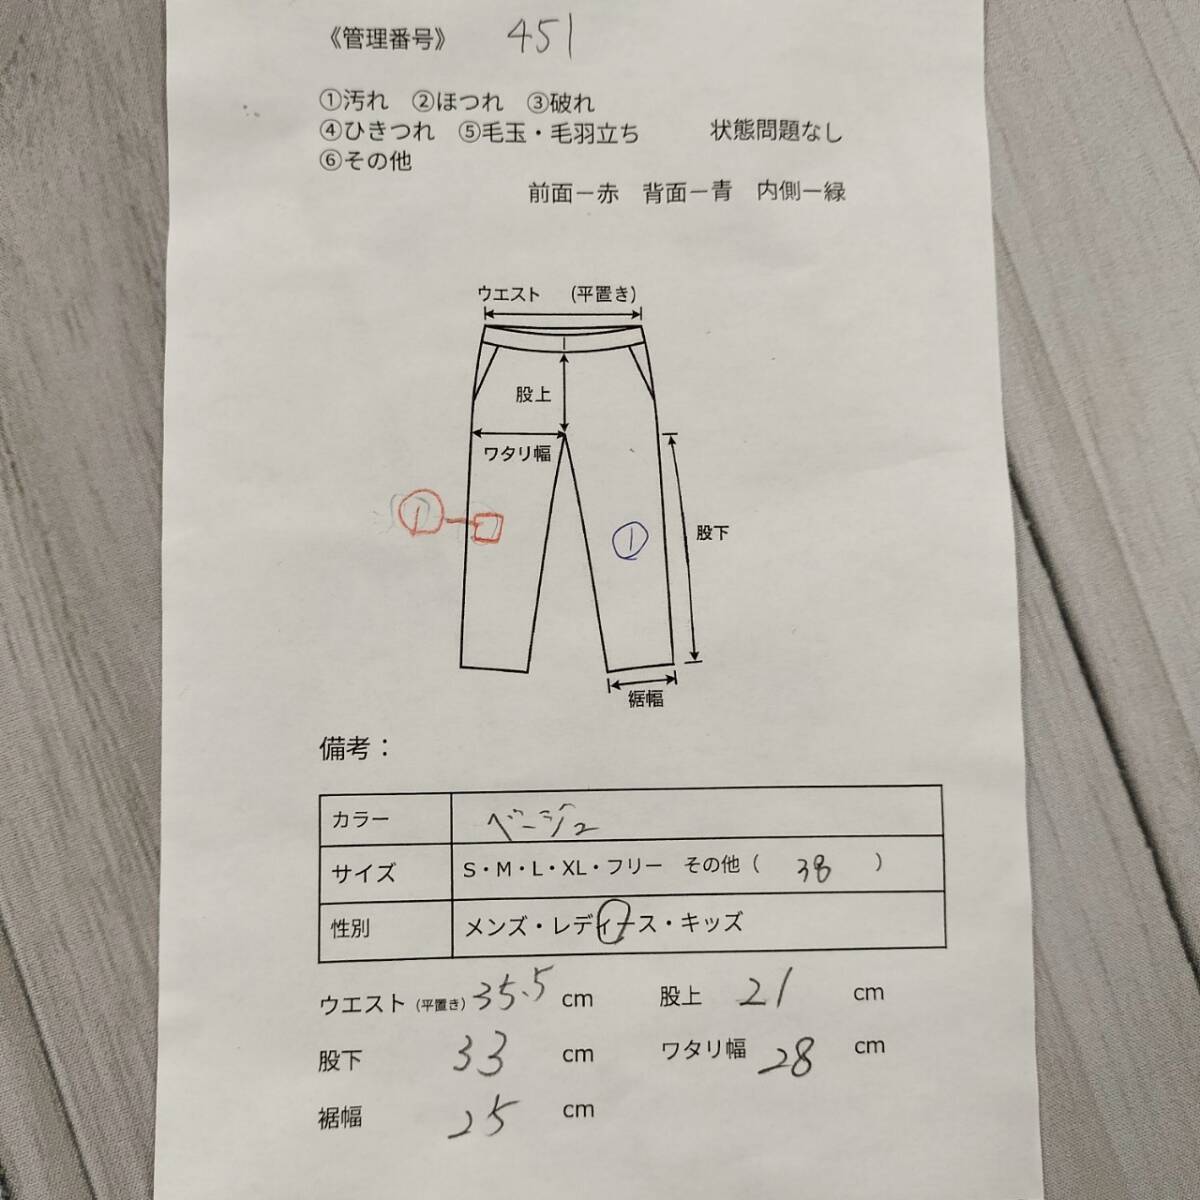 《管理番号》 451
①汚れ ②ほつれ ③破れ
④ひきつれ ⑤毛玉・毛羽立ち 状態問題なし
⑥その他
前面ー赤 背面ー青 内側ー緑
ウエスト (平置き)
股上
ワタリ幅
① ①
股下
裾幅
備考：
カラー ベージュ
サイズ S・M・L・XL・フリー その他（ 38 ）
性別 メンズ・レディース・キッズ
ウエスト（平置き） 35.5 cm 股上 21 cm
股下 33 cm ワタリ幅 28 cm
裾幅 25 cm